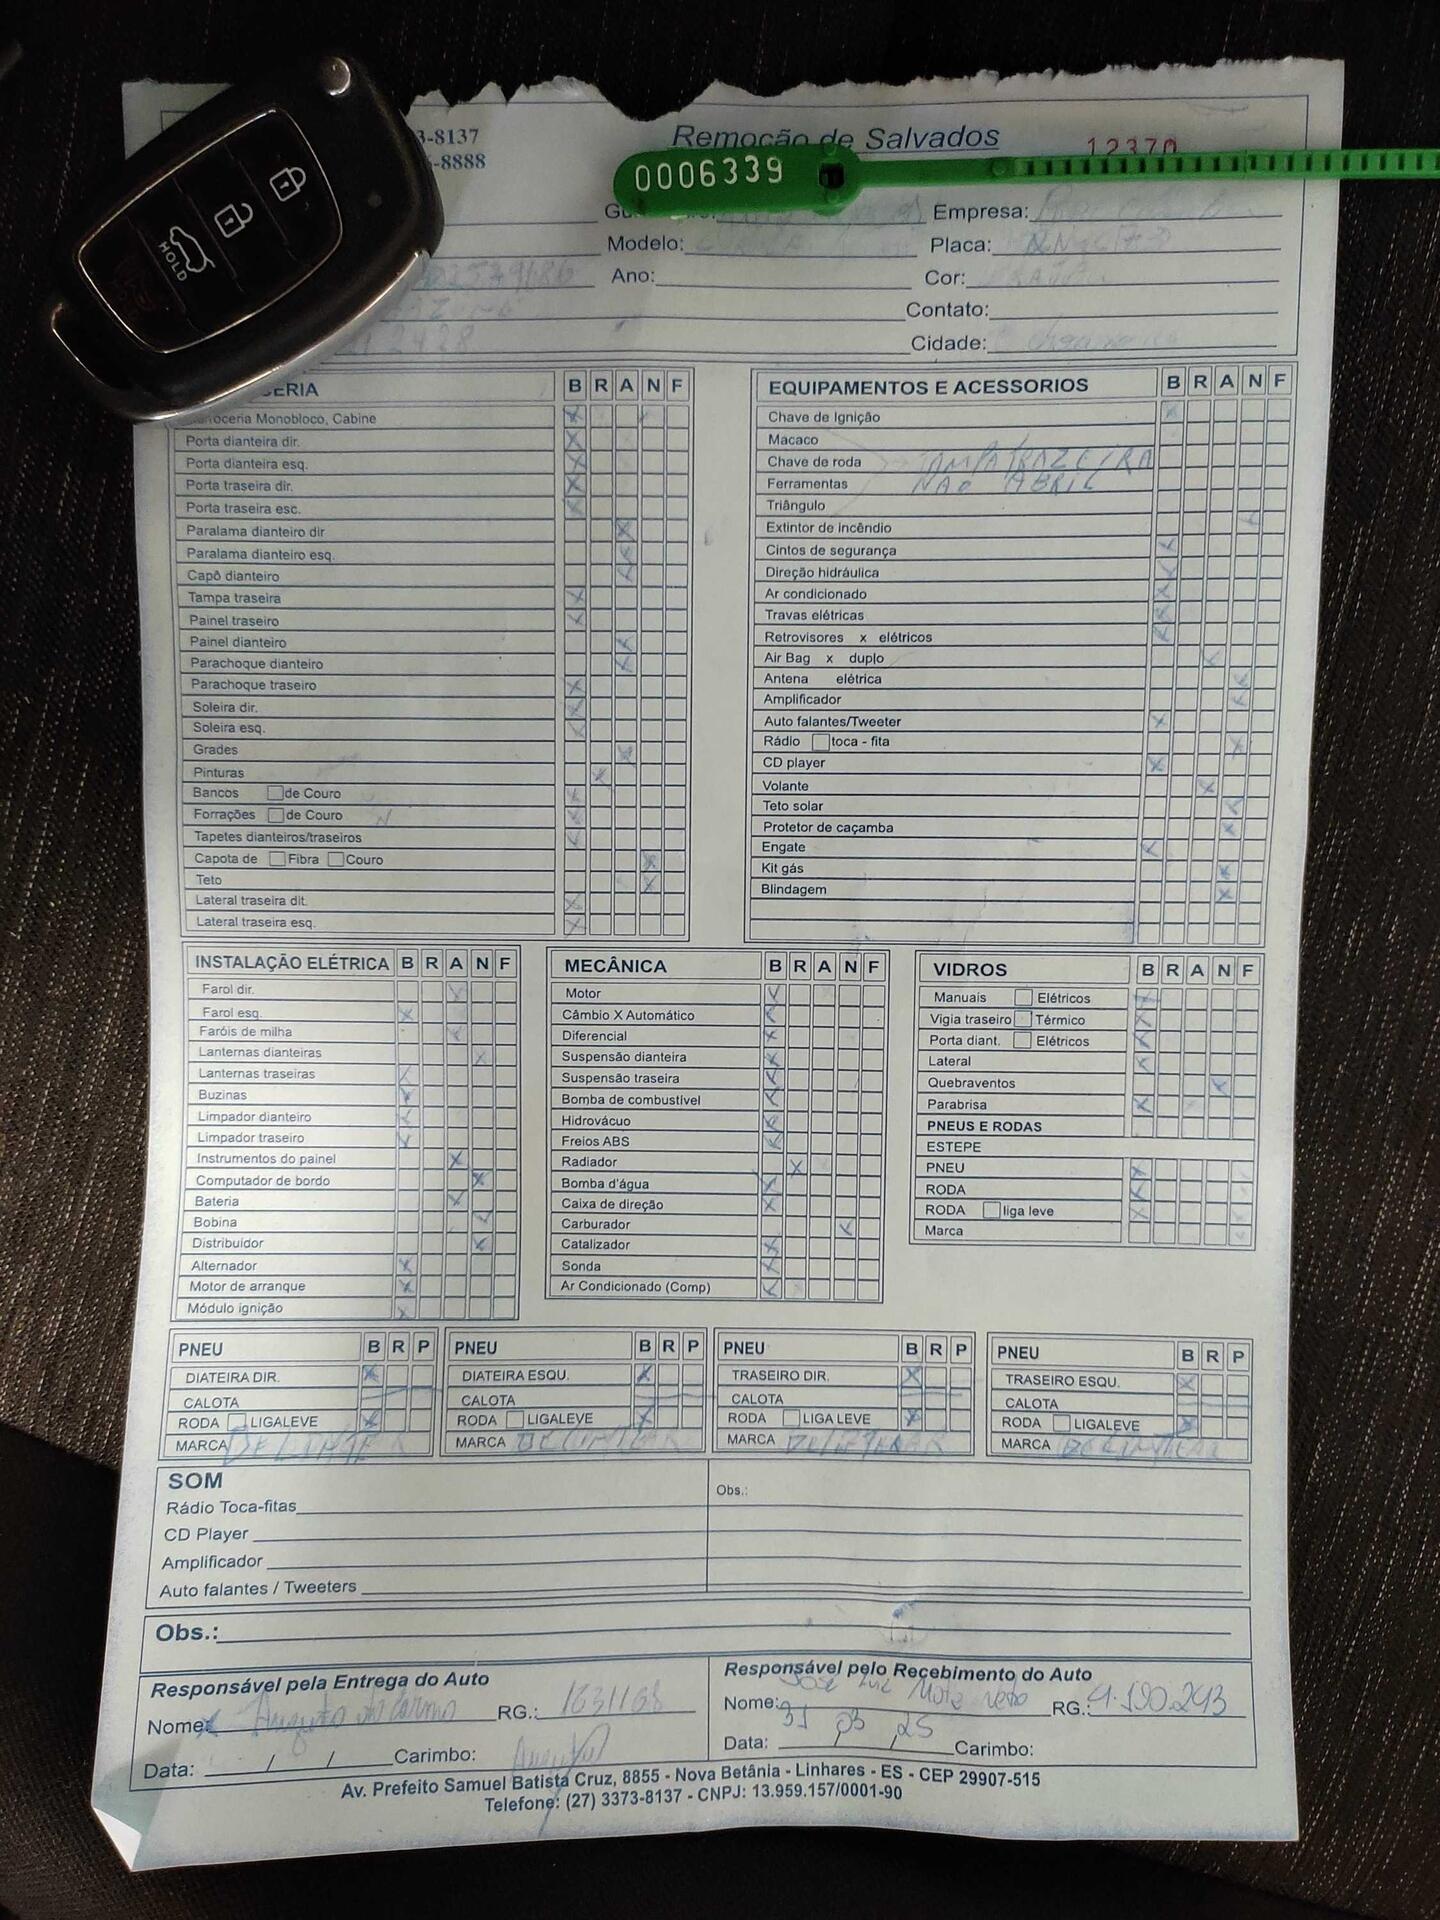 3-8137
-8888
Remoção de Salvados
12370
0006339
HOLD
Empresa:
Modelo:
Placa:
Ano:
Cor:
Contato:
Cidade:
CERIA B R A N F
Carroceria Monobloco, Cabine
Porta dianteira dir.
Porta dianteira esq.
Porta traseira dir.
Porta traseira esc.
Paralama dianteiro dir
Paralama dianteiro esq.
Capô dianteiro
Tampa traseira
Painel traseiro
Painel dianteiro
Parachoque dianteiro
Parachoque traseiro
Soleira dir.
Soleira esq.
Grades
Pinturas
Bancos de Couro
Forrações de Couro
Tapetes dianteiros/traseiros
Capota de Fibra Couro
Teto
Lateral traseira dit.
Lateral traseira esq.
EQUIPAMENTOS E ACESSORIOS B R A N F
Chave de Ignição
Macaco
Chave de roda TAMPA TRAZEIRA
Ferramentas NAO ABRIL
Triângulo
Extintor de incêndio
Cintos de segurança
Direção hidráulica
Ar condicionado
Travas elétricas
Retrovisores x elétricos
Air Bag x duplo
Antena elétrica
Amplificador
Auto falantes/Tweeter
Rádio toca - fita
CD player
Volante
Teto solar
Protetor de caçamba
Engate
Kit gás
Blindagem
INSTALAÇÃO ELÉTRICA B R A N F
Farol dir.
Farol esq.
Faróis de milha
Lanternas dianteiras
Lanternas traseiras
Buzinas
Limpador dianteiro
Limpador traseiro
Instrumentos do painel
Computador de bordo
Bateria
Bobina
Distribuidor
Alternador
Motor de arranque
Módulo ignição
MECÂNICA B R A N F
Motor
Câmbio X Automático
Diferencial
Suspensão dianteira
Suspensão traseira
Bomba de combustível
Hidrovácuo
Freios ABS
Radiador
Bomba d'água
Caixa de direção
Carburador
Catalizador
Sonda
Ar Condicionado (Comp)
VIDROS B R A N F
Manuais Elétricos
Vigia traseiro Térmico
Porta diant. Elétricos
Lateral
Quebraventos
Parabrisa
PNEUS E RODAS
ESTEPE
PNEU
RODA
RODA liga leve
Marca
PNEU B R P
DIATEIRA DIR.
CALOTA
RODA LIGALEVE
MARCA
PNEU B R P
DIATEIRA ESQU.
CALOTA
RODA LIGALEVE
MARCA
PNEU B R P
TRASEIRO DIR.
CALOTA
RODA LIGA LEVE
MARCA
PNEU B R P
TRASEIRO ESQU.
CALOTA
RODA LIGALEVE
MARCA
SOM
Rádio Toca-fitas
CD Player
Amplificador
Auto falantes / Tweeters
Obs.:
Obs.:
Responsável pela Entrega do Auto
Nome: RG.: 1631168
Data: / / Carimbo:
Responsável pelo Recebimento do Auto
Nome: Jose Luiz Mota Neto RG.: 4.190.293
Data: 31 / 03 / 25 Carimbo:
Av. Prefeito Samuel Batista Cruz, 8855 - Nova Betânia - Linhares - ES - CEP 29907-515
Telefone: (27) 3373-8137 - CNPJ: 13.959.157/0001-90